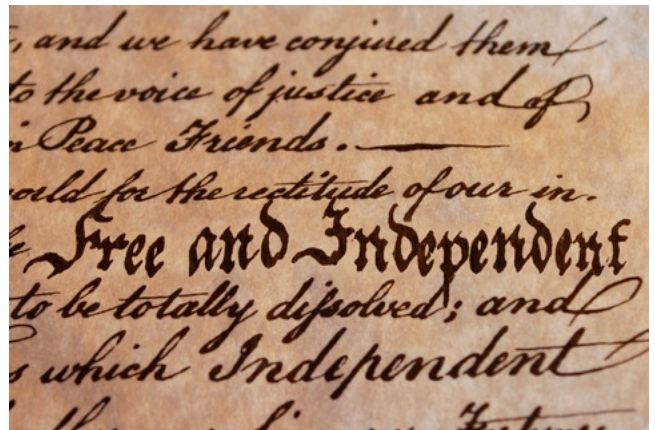 , and we have conjured them
to the voice of justice and of
in Peace Friends. —
world for the rectitude of our in.
Free and Independent
to be totally dissolved; and
s which Independent